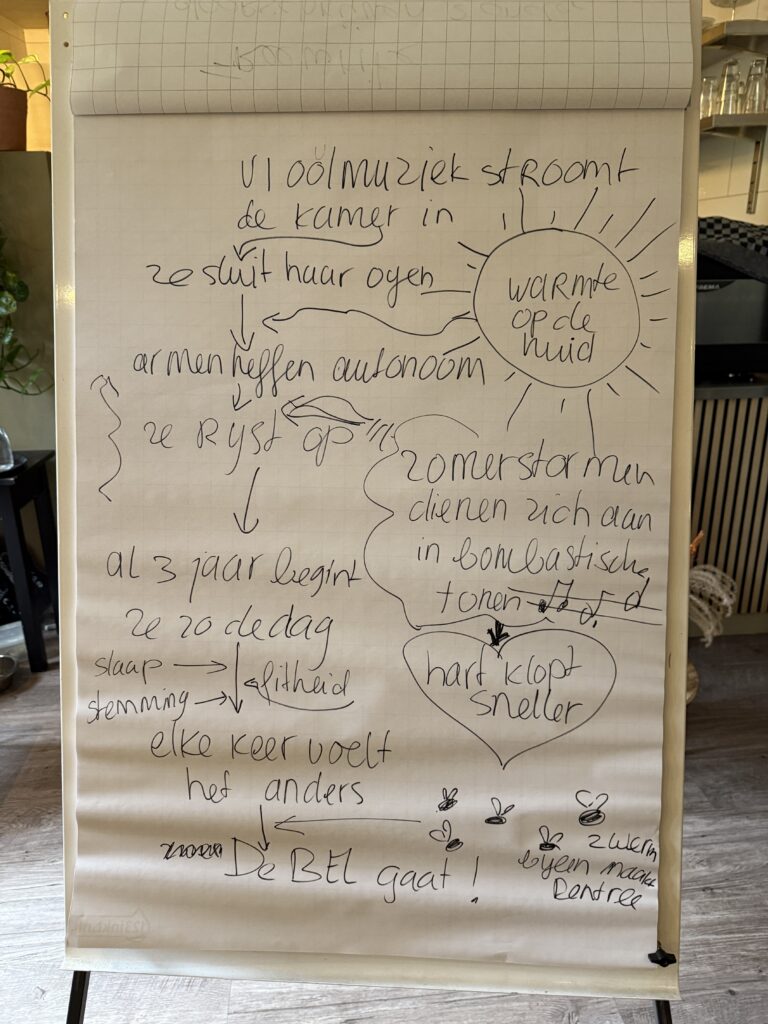 vioolmuziek stroomt
de kamer in
ze sluit haar ogen
warmte
op de
huid
armen heffen autonoom
ze Ryst op
zomerstormen
dienen zich aan
in bombastische
tonen
al 3 jaar begint
ze zo de dag
hart klopt
sneller
slaap
fitheid
stemming
elke keer voelt
het anders
De BEL gaat!
zwerm
bijen maakt
Rentree